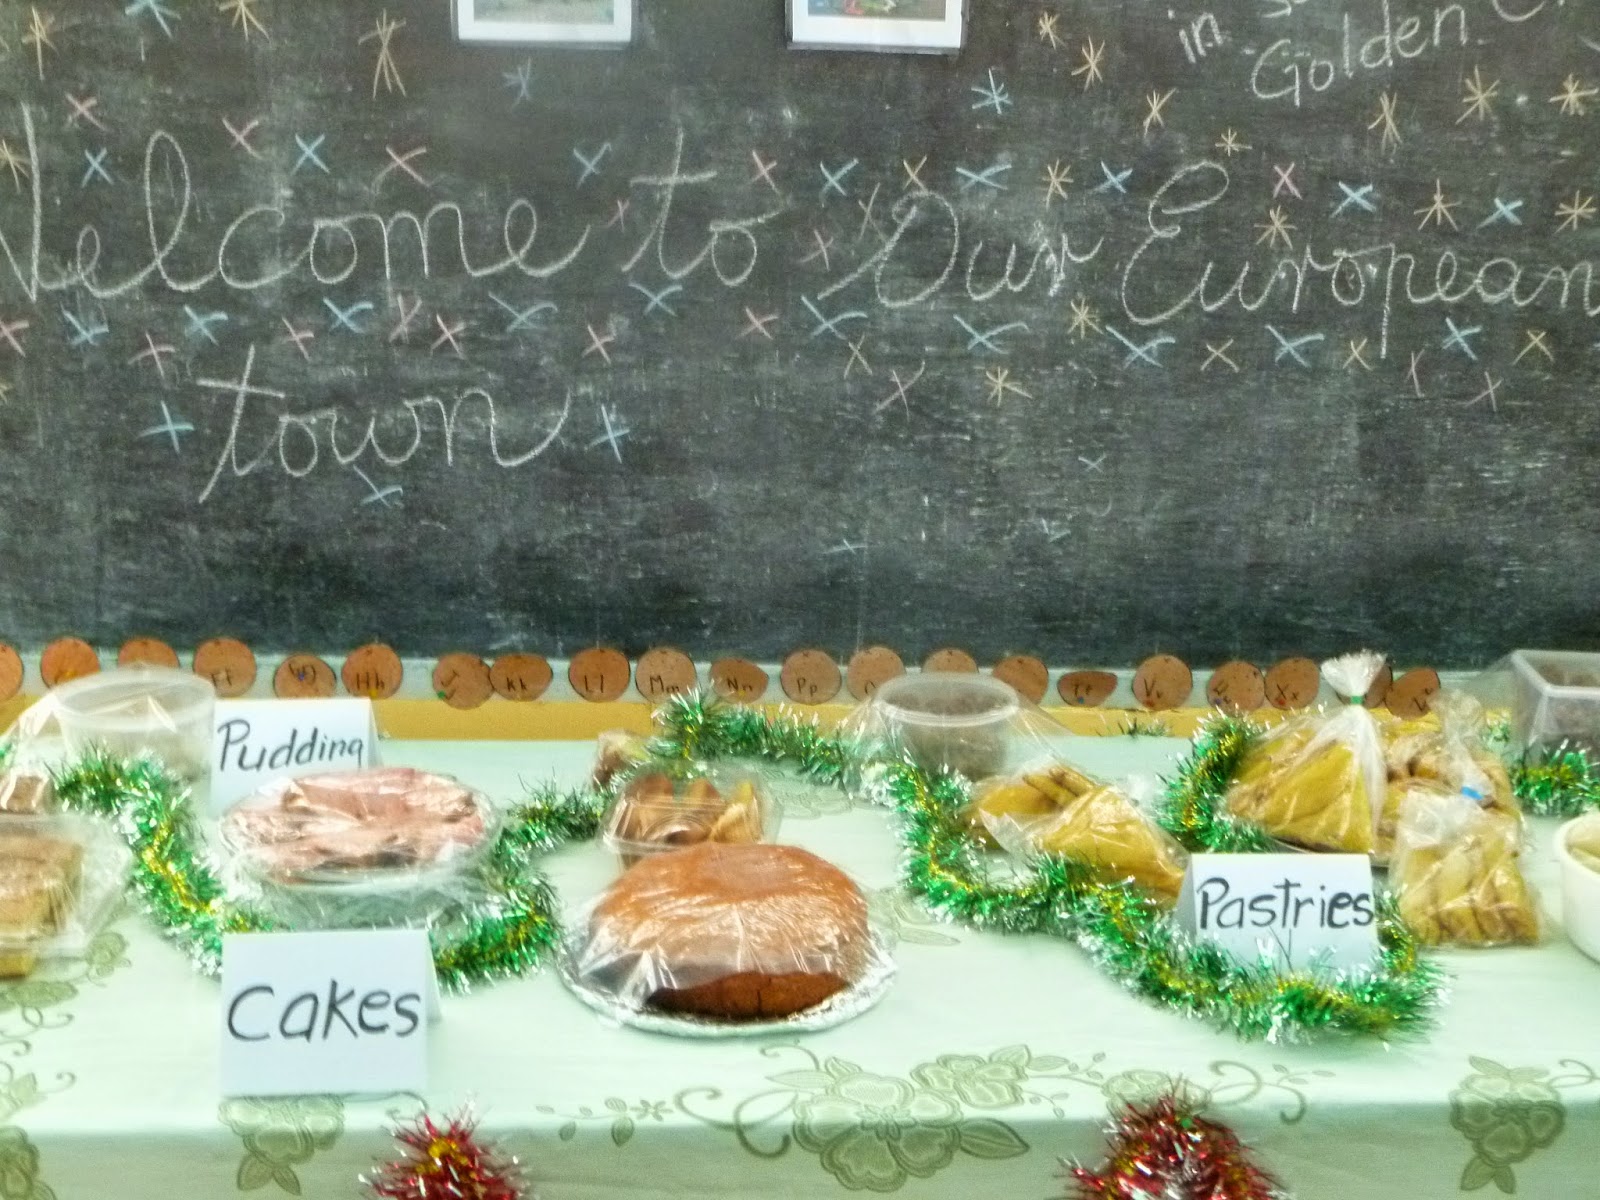 in
Golden
Welcome to Our European
town
Ff Gg Hh Kk Ll Mm Nn Pp Vv Xx
Pudding
Pastries
Cakes